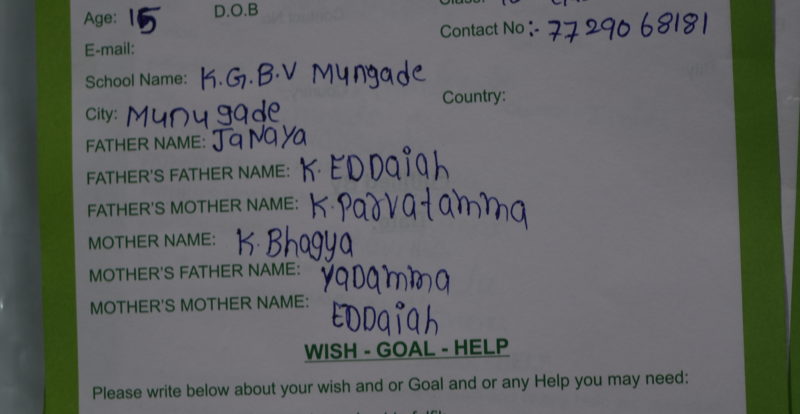 Age: 15 D.O.B
Contact No :- 77290 68181
E-mail:
School Name: K.G.B.V Mungade
City: Munugade Country:
FATHER NAME: JaNaya
FATHER'S FATHER NAME: K. EDDaiah
FATHER'S MOTHER NAME: K. Parvatamma
MOTHER NAME: K. Bhagya
MOTHER'S FATHER NAME: YaDamma
MOTHER'S MOTHER NAME: EDDaiah
WISH - GOAL - HELP
Please write below about your wish and or Goal and or any Help you may need: